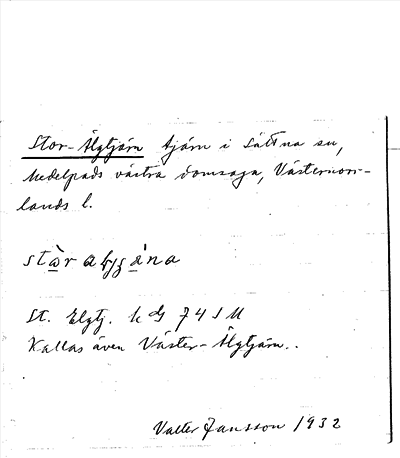 Stor-Älgtjärn tjärn i Sättna sn,
Medelpads västra domsaga, Västernorr-
lands l.
St. Elgtj. k 74 S M
Kallas även Väster-Älgtjärn..
Valter Jansson 1932